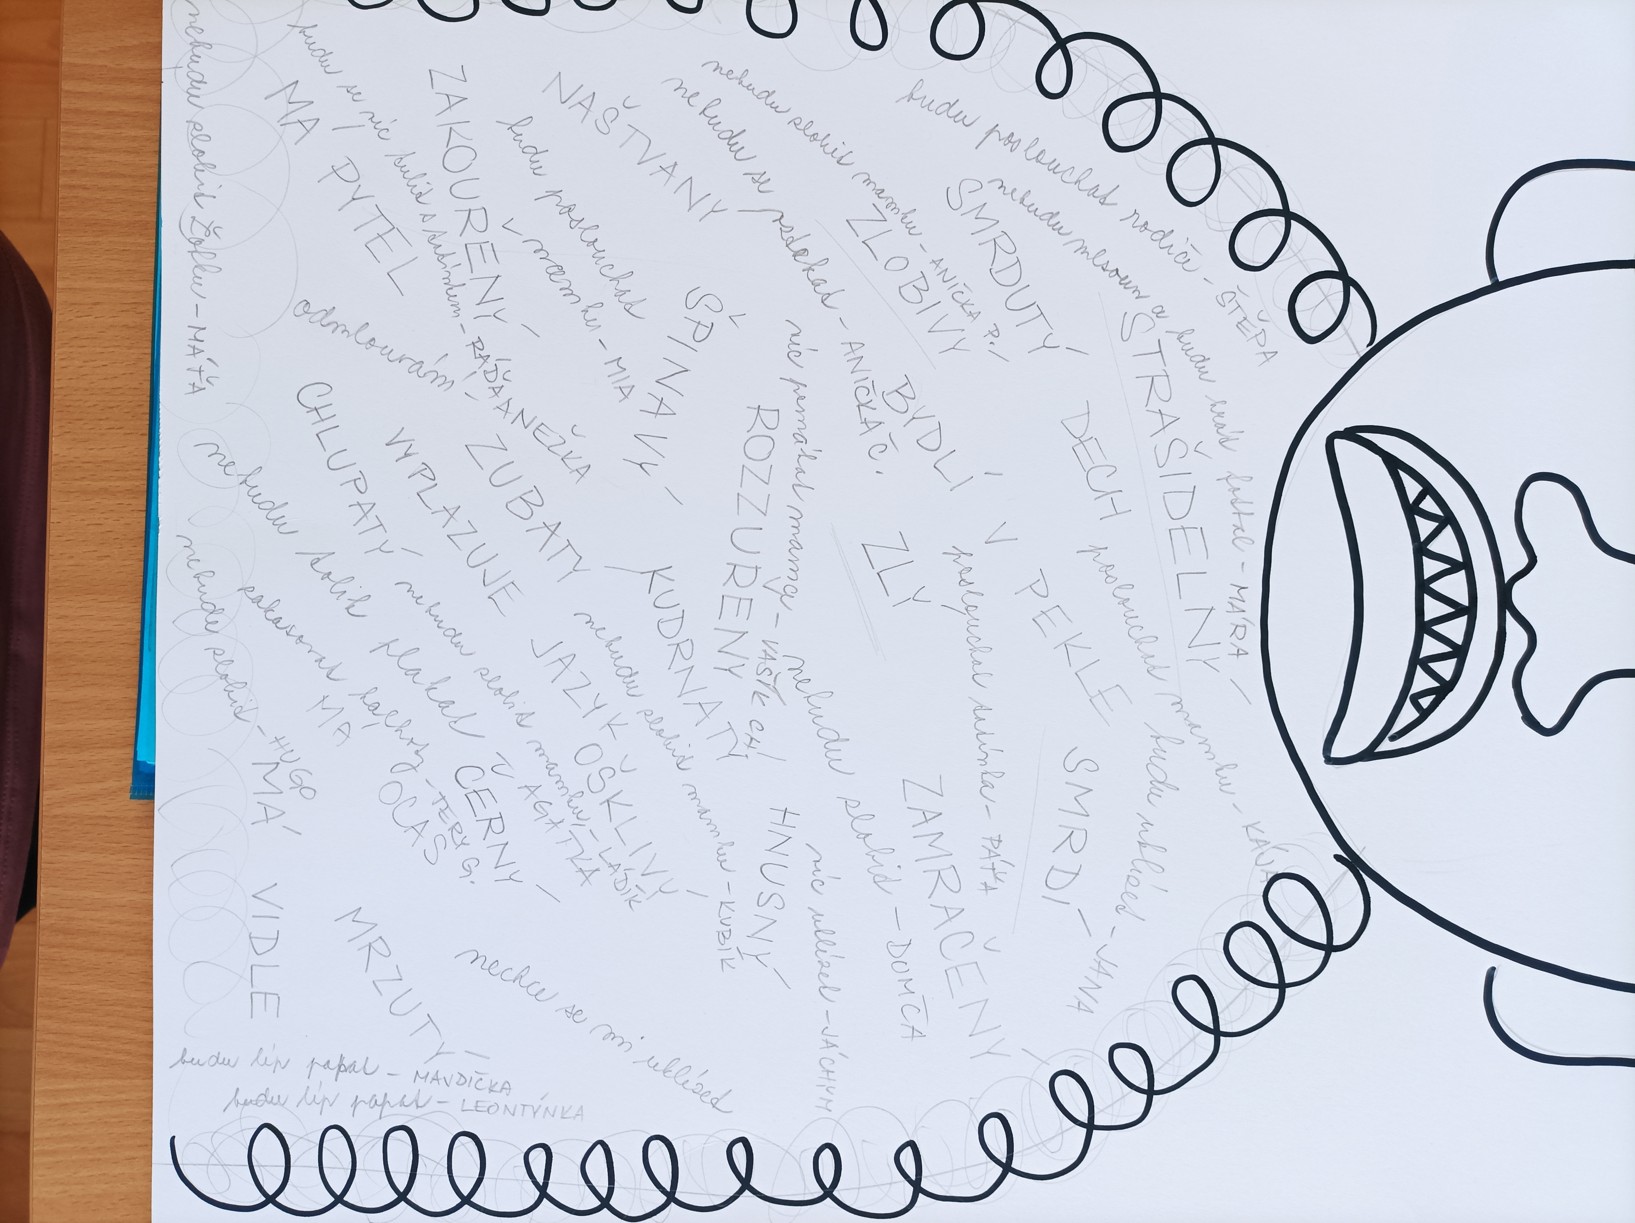 nebudu zlobit Žofku - MÁŤA
budu se víc tulit s tatínkem - RÁĎA
MÁ PYTEL
ZAKOUŘENÝ
budu poslouchat mamku - MIA
NAŠTVANÝ
nebudu se vztekat - ANIČKA Č.
nebudu zlobit mamku - ANIČKA P.
budu poslouchat rodiče - ŠTĚPA
nebudu mlsoun a budu hrát fotbal - MÁRA
SMRDUTÝ
ZLOBIVÝ
STRAŠIDELNÝ
ŠPINAVÝ
odmlouvám - ANEŽKA
CHLUPATÝ
VYPLAZUJE JAZYK
ZUBATÝ
ROZZUŘENÝ
víc pomáhat mamce - VAŠÍK CH.
BYDLÍ V PEKLE
DECH SMRDÍ
poslouchat mamku - KÁVA
ZLÝ
poslouchat taťínka - PÁŤA
KUDRNATÝ
nebudu tolik plakat
nebudu zlobit mamku - AGÁTKA
nebudu zlobit mamku - LÁDÍK
nebudu zlobit mamku - KUBÍK
nebudu zlobit - DOMČA
budu uklízet - VANA
nebudu zlobit - HUGO
pokazovat kalhoty - TERY G.
MÁ OCAS
ČERNÝ
OŠKLIVÝ
HNUSNÝ
víc uklízet - JÁCHYM
ZAMRAČENÝ
MÁ VIDLE
MRZUTÝ
nechce se mi uklízet
budu líp papat - MAVDIČKA
budu líp papat - LEONTÝNKA